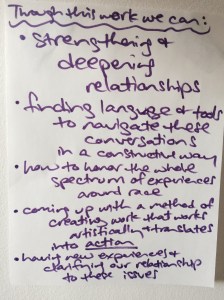 Through this work we can:
• strengthening &
deepening
relationships
• finding language & tools
to navigate these
conversations
in a constructive way
• how to honor the whole
spectrum of experiences
around race.
• coming up with a method of
creating work that works
artistically & translates
into action
• having new experiences &
clarifying our relationship
to these issues